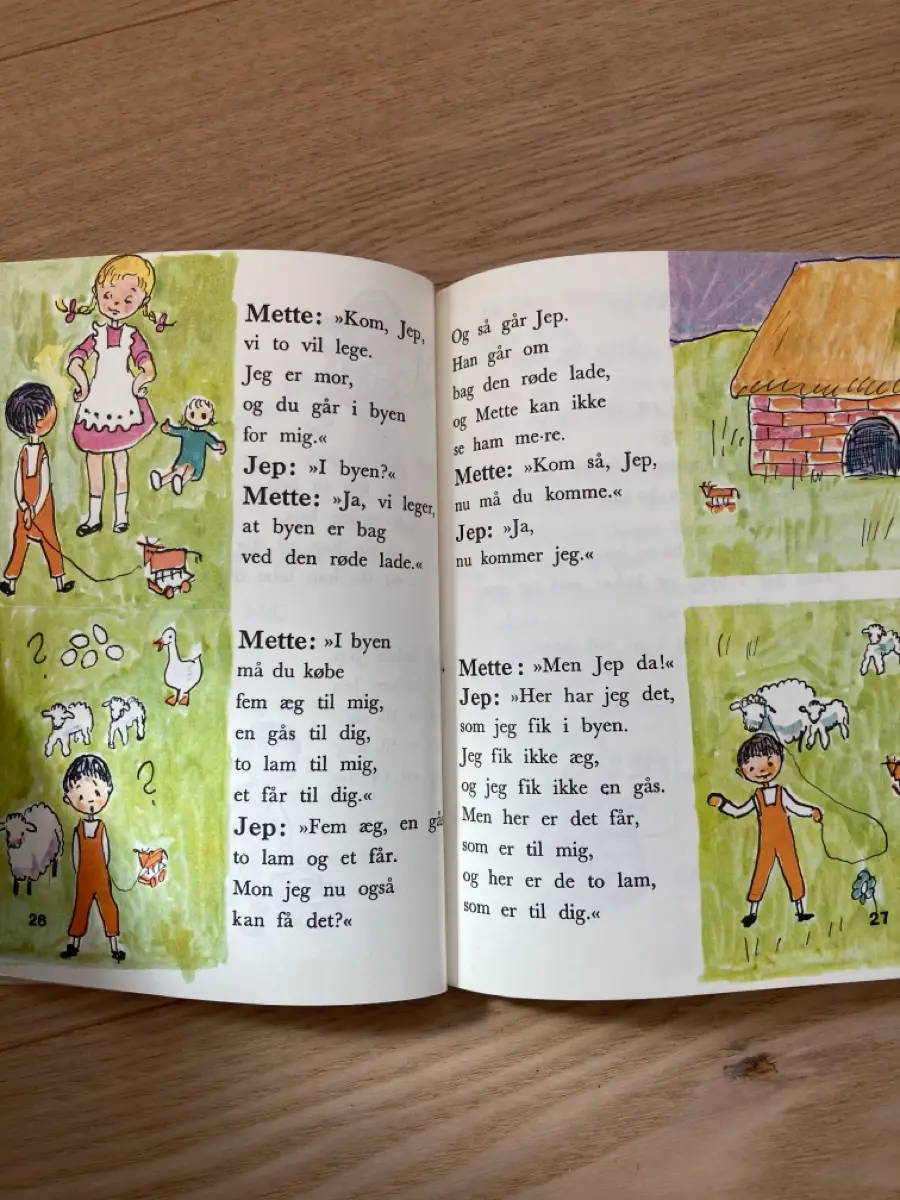 Mette: »Kom, Jep,
vi to vil lege.
Jeg er mor,
og du går i byen
for mig.«
Jep: »I byen?«
Mette: »Ja, vi leger,
at byen er bag
ved den røde lade.«
Mette: »I byen
må du købe
fem æg til mig,
en gås til dig,
to lam til mig,
et får til dig.«
Jep: »Fem æg, en
to lam og et får.
Mon jeg nu også
kan få det?«
26
Og så går Jep.
Han går om
bag den røde lade,
og Mette kan ikke
se ham me·re.
Mette: »Kom så, Jep,
nu må du komme.«
Jep: »Ja,
nu kommer jeg.«
Mette: »Men Jep da!«
Jep: »Her har jeg det,
som jeg fik i byen.
Jeg fik ikke æg,
og jeg fik ikke en gås.
Men her er det får,
som er til mig,
og her er de to lam,
som er til dig.«
27